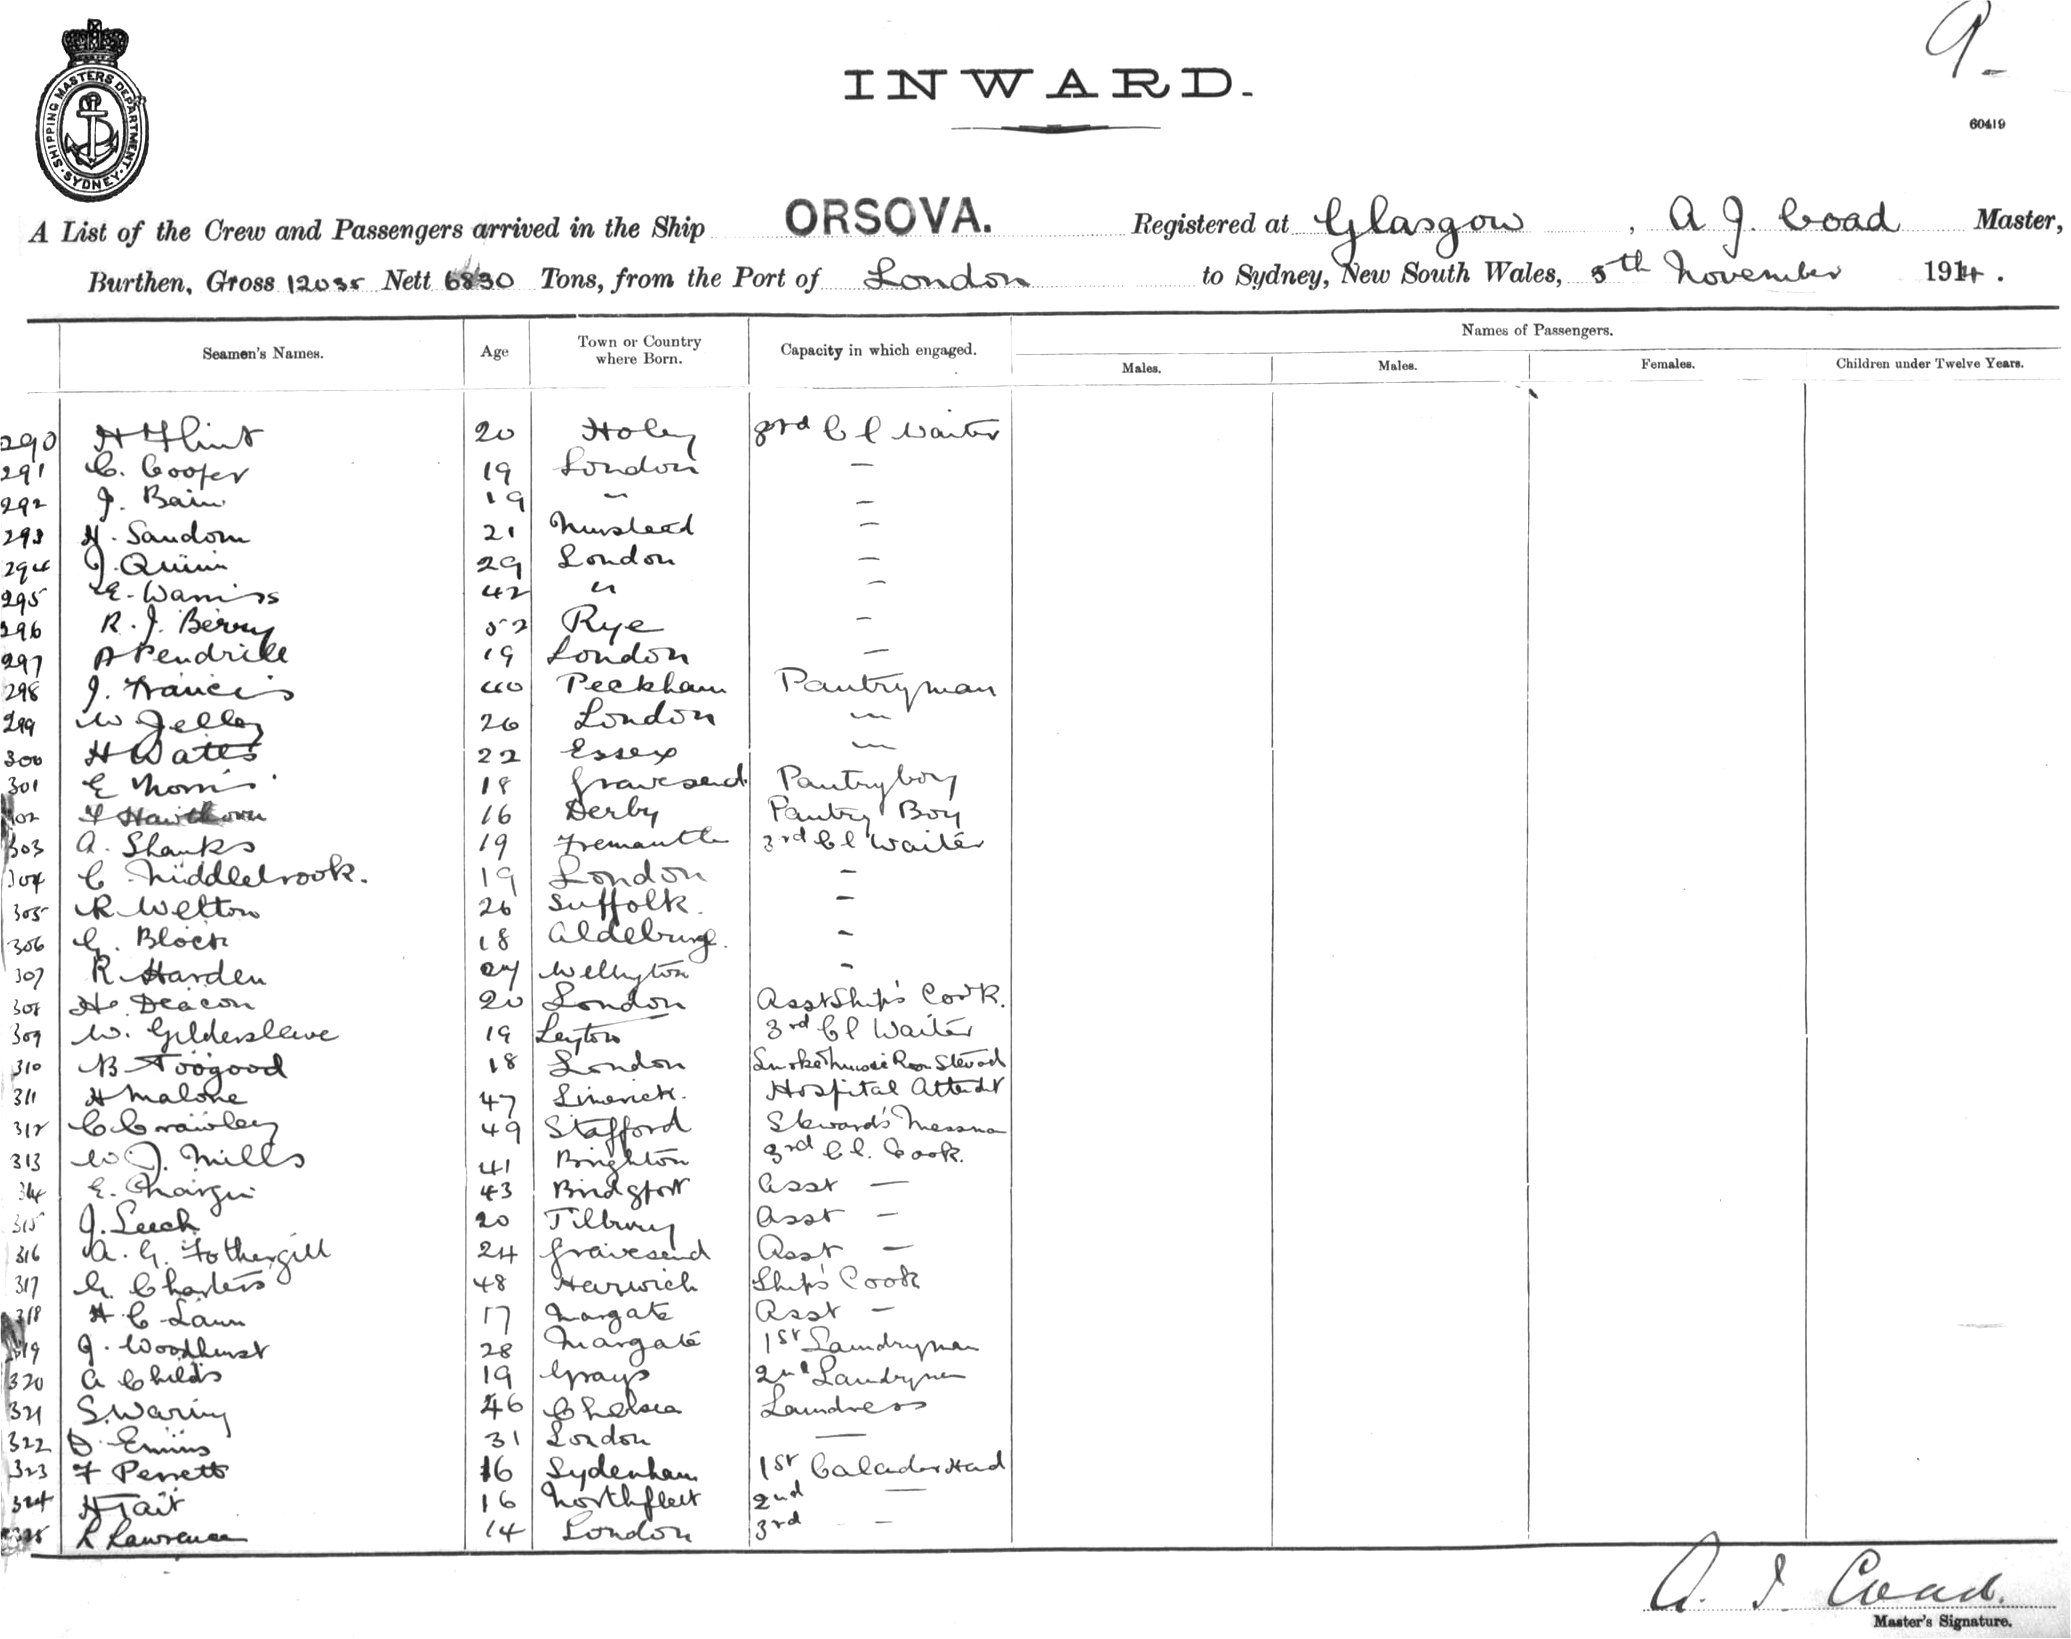 9-
INWARD.
60419
SHIPPING MASTERS DEPARTMENT SYDNEY
A List of the Crew and Passengers arrived in the Ship ORSOVA. Registered at Glasgow, A J. Coad Master,
Burthen, Gross 12035 Nett 6830 Tons, from the Port of London to Sydney, New South Wales, 5th November 1914.
Seamen's Names. Age Town or Country where Born. Capacity in which engaged. Names of Passengers.
Males. Males. Females. Children under Twelve Years.
290 H Flint 20 Holey 3rd Cl Waiter
291 C. Cooper 19 London —
292 J. Bain 19 " —
293 H. Sandom 21 —
294 J. Quinn 29 London —
295 E. 42 " —
296 R. J. Berry 52 Rye —
297 A Pendrill 19 London —
298 J. Francis 40 Peckham Pantryman
299 W Jelley 26 London "
300 H Wates 22 Essex "
301 E Morris 18 Gravesend Pantryboy
302 F Hawthorn 16 Derby Pantry Boy
303 A. Shanks 19 Fremantle 3rd Cl Waiter
304 C Middlebrook. 19 London -
305 R Welton 26 Suffolk. -
306 G. Block 18 -
307 R Harden 27 Wellington -
308 H. Deacon 20 London Asst Ship's Cook.
309 W. Gildersleeve 19 Leyton 3rd Cl Waiter
310 B Toogood 18 London Smoke & Music Room Steward
311 H Malone 47 Limerick. Hospital Attendt
312 C Crawley 49 Stafford Steward's Messman
313 W J. Mills 41 Brighton 3rd Cl. Cook.
314 E. 43 Bridgport Asst —
315 J. Leech 20 Tilbury Asst —
316 A. G. Fothergill 24 Gravesend Asst —
317 G. Charters 48 Harwich Ship's Cook
318 H C Lawn 17 Margate Asst —
319 J. Woodhurst 28 Margate 1st Laundryman
320 A Childs 19 Grays 2nd Laundryman
321 S. Waring 46 Chelsea Laundress
322 D. Emins 31 London —
323 F Perrett 16 Sydenham 1st
324 H Tait 16 Northfleet 2nd —
325 R Lawrence 14 London 3rd —
A. J. Coad.
Master's Signature.